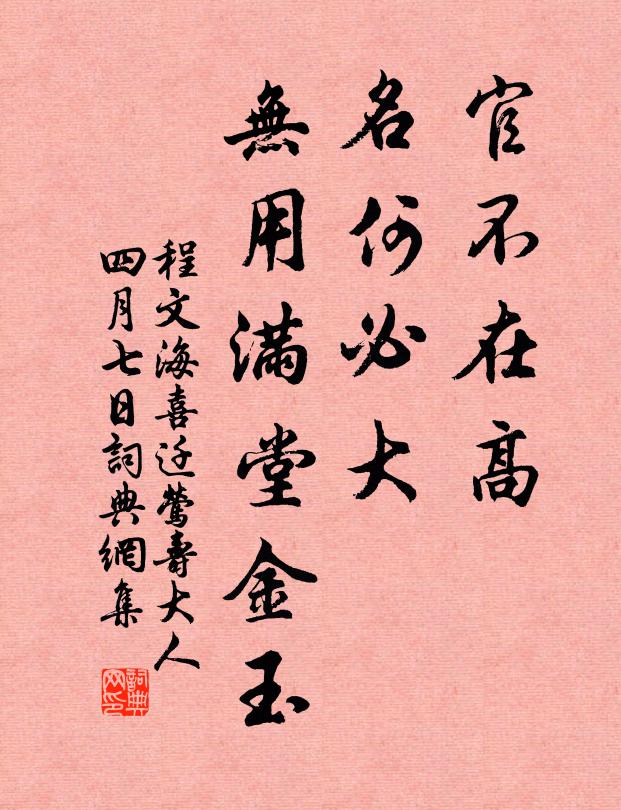 官不在高
名何必大
無用滿堂金玉
程文海喜迁鶯壽大人
四月七日詞典網集
詞典
网印